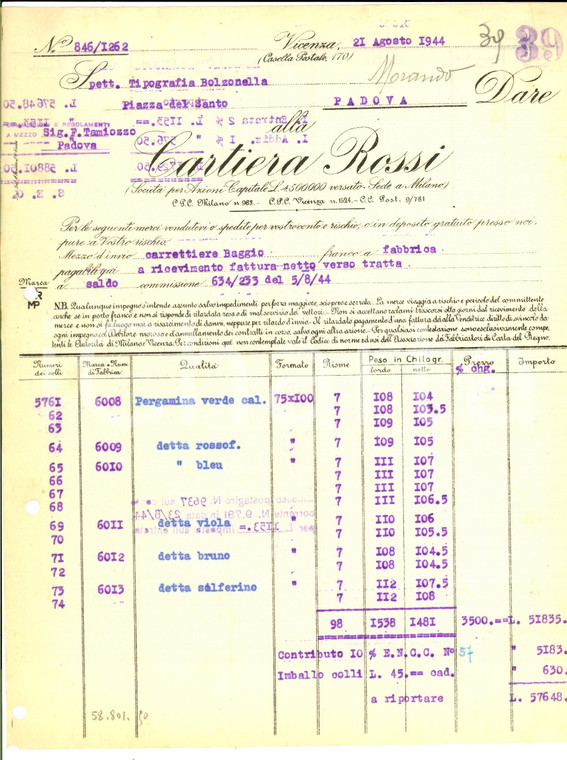 N.° 846/1262
Vicenza, 21 Agosto 1944
(Casella Postale, 170)
39
39
Morando
Spett. Tipografia Bolzonella
Piazza del Santo
PADOVA
Dare
A MEZZO Sig. F. Tamiozzo
Padova
alla
Cartiera Rossi
(Società per Azioni-Capitale L. 4.500.000 versato-Sede a Milano)
C.P.C. Milano n. 963. - C.P.C. Vicenza n. 1524. - C.C. Post. 9/781
Per le seguenti merci vendutevi o spedite per vostro conto e rischio, e in deposito gratuito presso noi
pure a Vostro rischio.
Mezzo d'invio carrettiere Baggio franco a fabbrica
pagabili qui a ricevimento fattura netto verso tratta
Marca a saldo commissione 634/233 del 5/8/44
N.B. Qualunque impegno s'intende assunto salvo impedimenti per forza maggiore, scioperi e serrata. La merce viaggia a rischio e pericolo del committente
anche se in porto franco e non si risponde di ritardata resa o di mal servizio dei vettori. - Non si accettano reclami trascorsi otto giorni dal ricevimento della
merce e non si fa luogo mai a risarcimenti di danni, neppure per ritardo d'invio. Il ritardato pagamento d'una fattura dà alla Venditrice diritto di svincolo da
ogni impegno col Debitore moroso e d'annullamento dei contratti in corso, salvo ogni altra azione. Per qualsiasi contestazione sono esclusivamente compe-
tenti le Autorità di Milano e Vicenza. Per condizioni qui non contemplate vale il Codice di norme ed usi dell'Associazione dei Fabbricatori di Carta del Regno.
Numeri dei colli Marca e Num. di Fabbrica Qualità Formato Risme Peso in Chilogr. lordo netto Prezzo % chg. Importo
5761 6008 Pergamina verde cal. 75x100 7 108 104
62 7 108 103.5
63 7 109 105
64 6009 detta rossof. " 7 109 105
65 6010 " bleu " 7 111 107
66 7 111 107
67 7 111 107
68 7 111 106.5
69 6011 detta viola " 7 110 106
70 7 110 105.5
71 6012 detta bruno " 7 108 104.5
72 7 108 104.5
73 6013 detta solferino " 7 112 107.5
74 7 112 108
98 1538 1481 3500.== L. 51835.
Contributo 10 % E.N.C.C. N° 57 " 5183.
Imballo colli L. 45.== cad. " 630.
a riportare L. 57648.
58.801.50